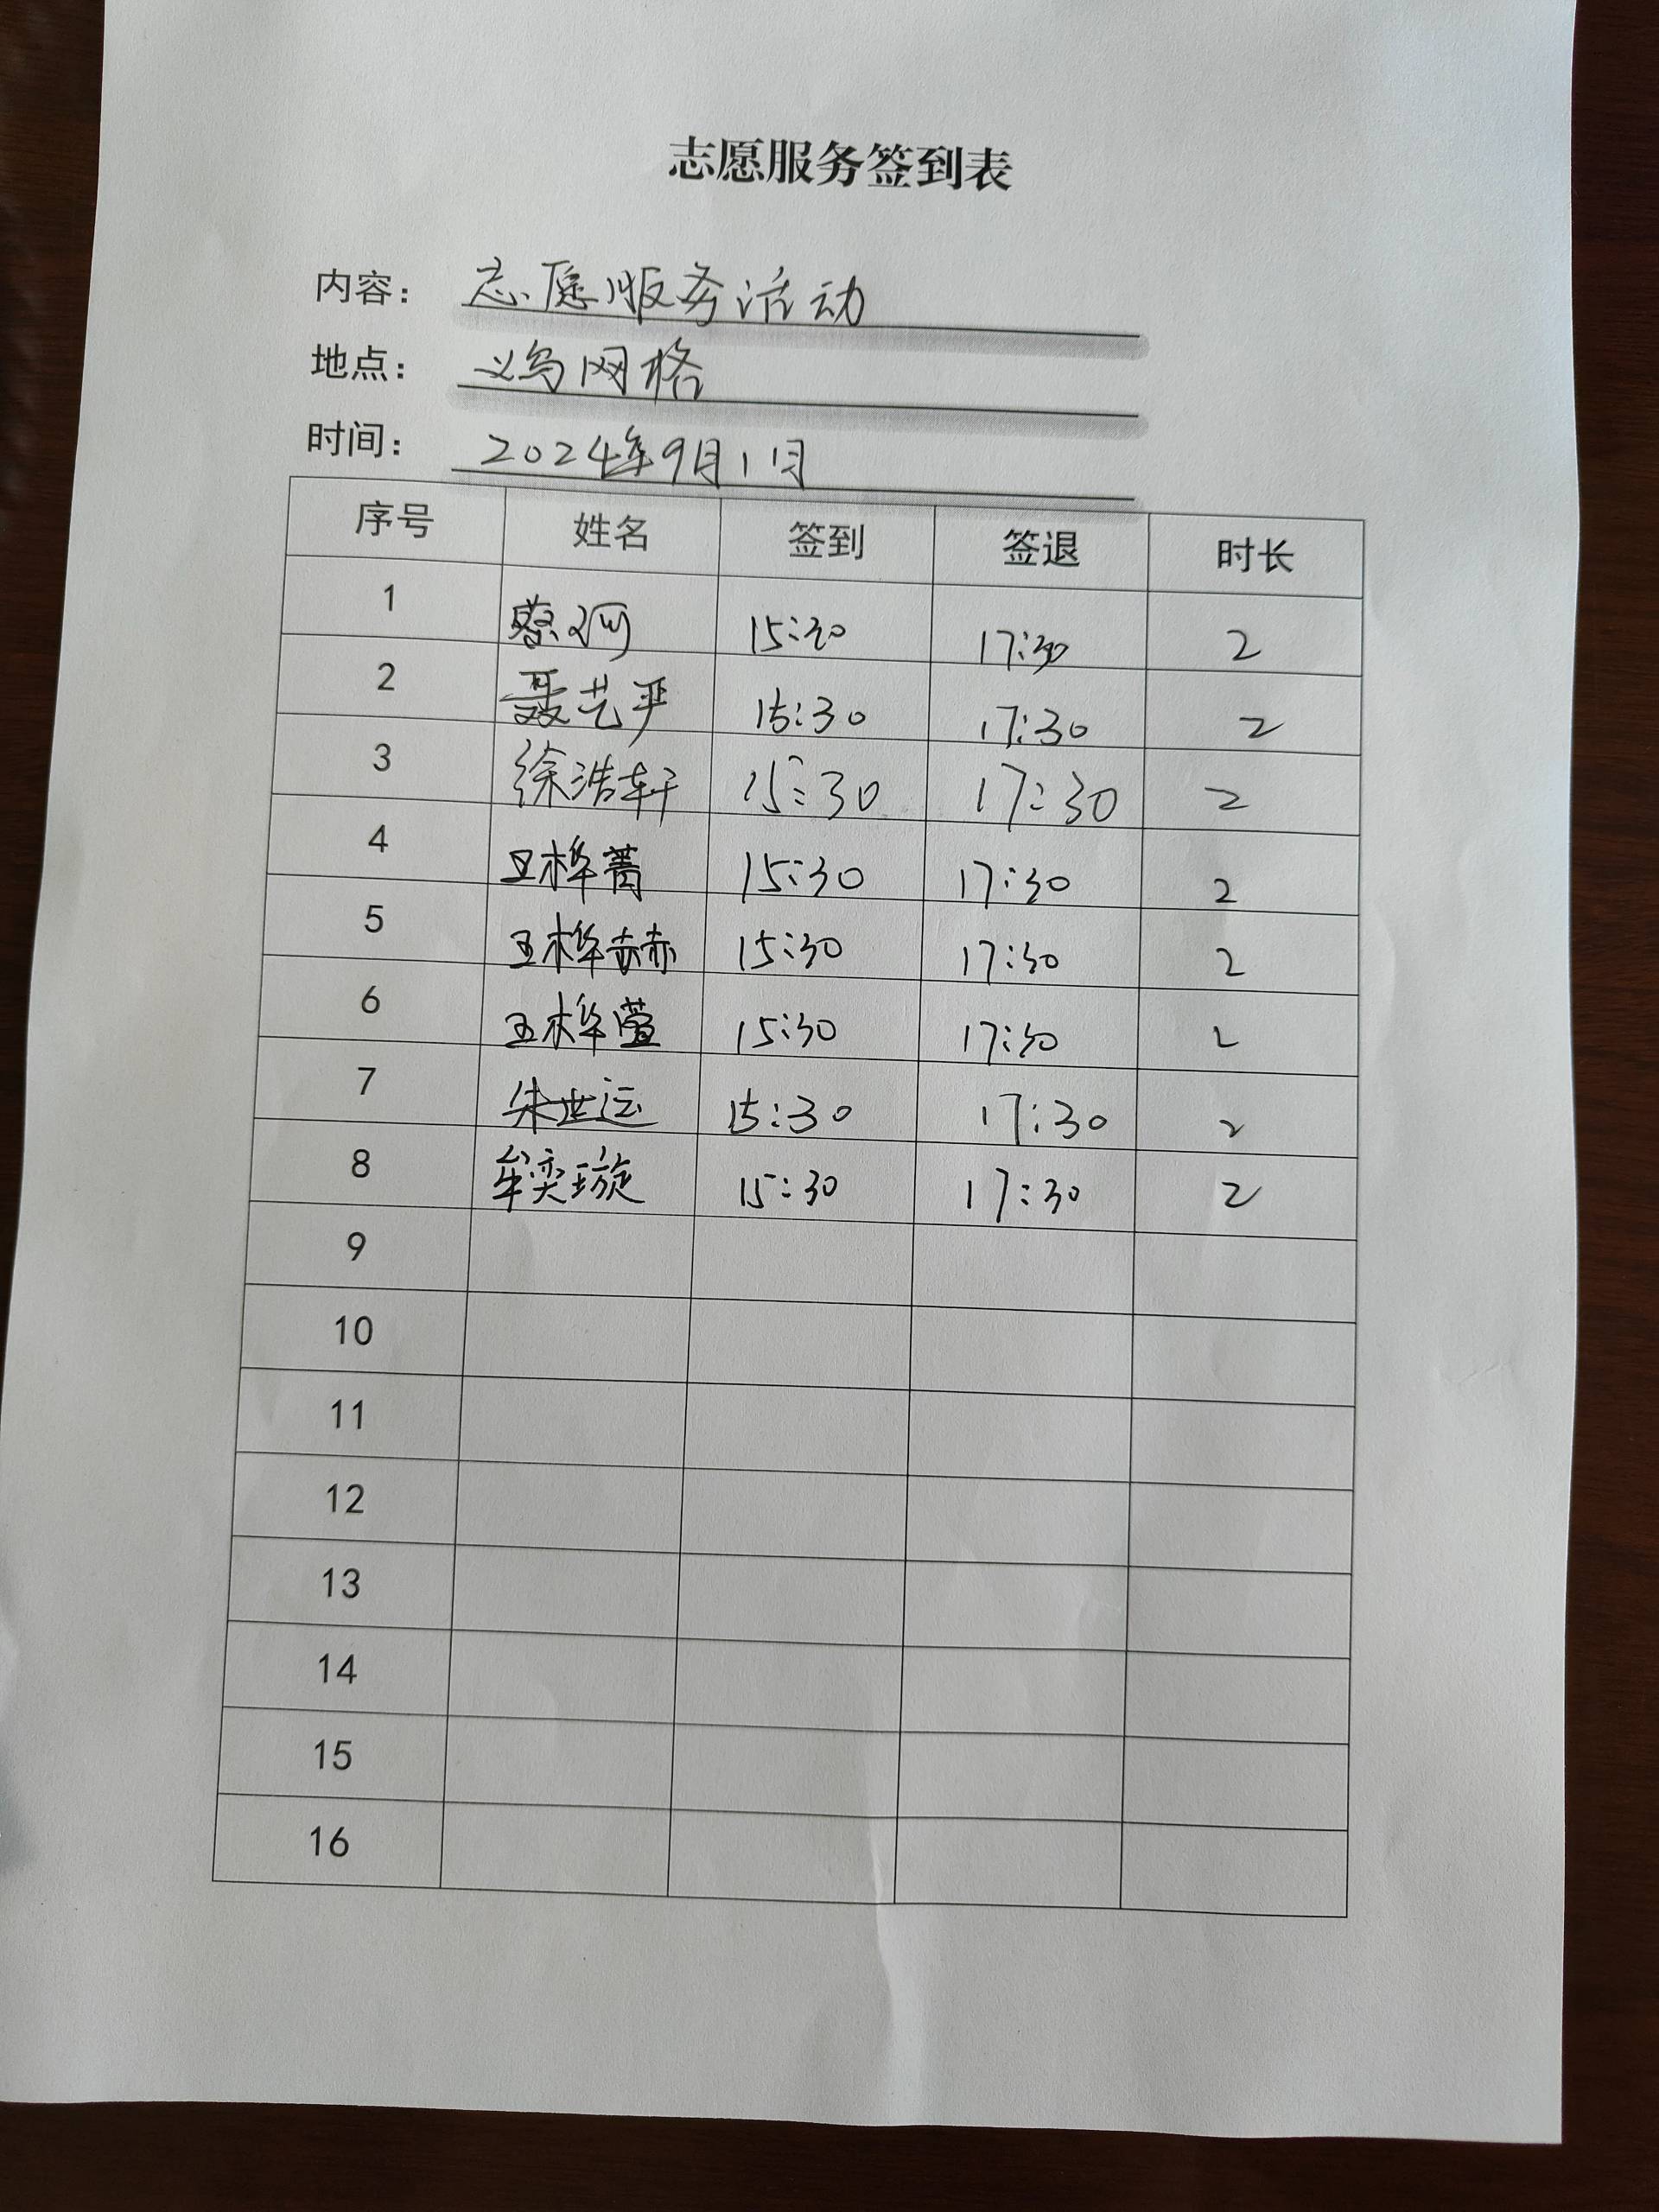 志愿服务签到表
内容： 志愿服务活动
地点： 义乌网格
时间： 2024年9月1日
序号 姓名 签到 签退 时长
1 15:30 17:30 2
2 聂艺严 15:30 17:30 2
3 徐浩轩 15:30 17:30 2
4 王桦菁 15:30 17:30 2
5 王桦赫 15:30 17:30 2
6 王桦萱 15:30 17:30 2
7 朱世运 15:30 17:30 2
8 牟奕璇 15:30 17:30 2
9
10
11
12
13
14
15
16